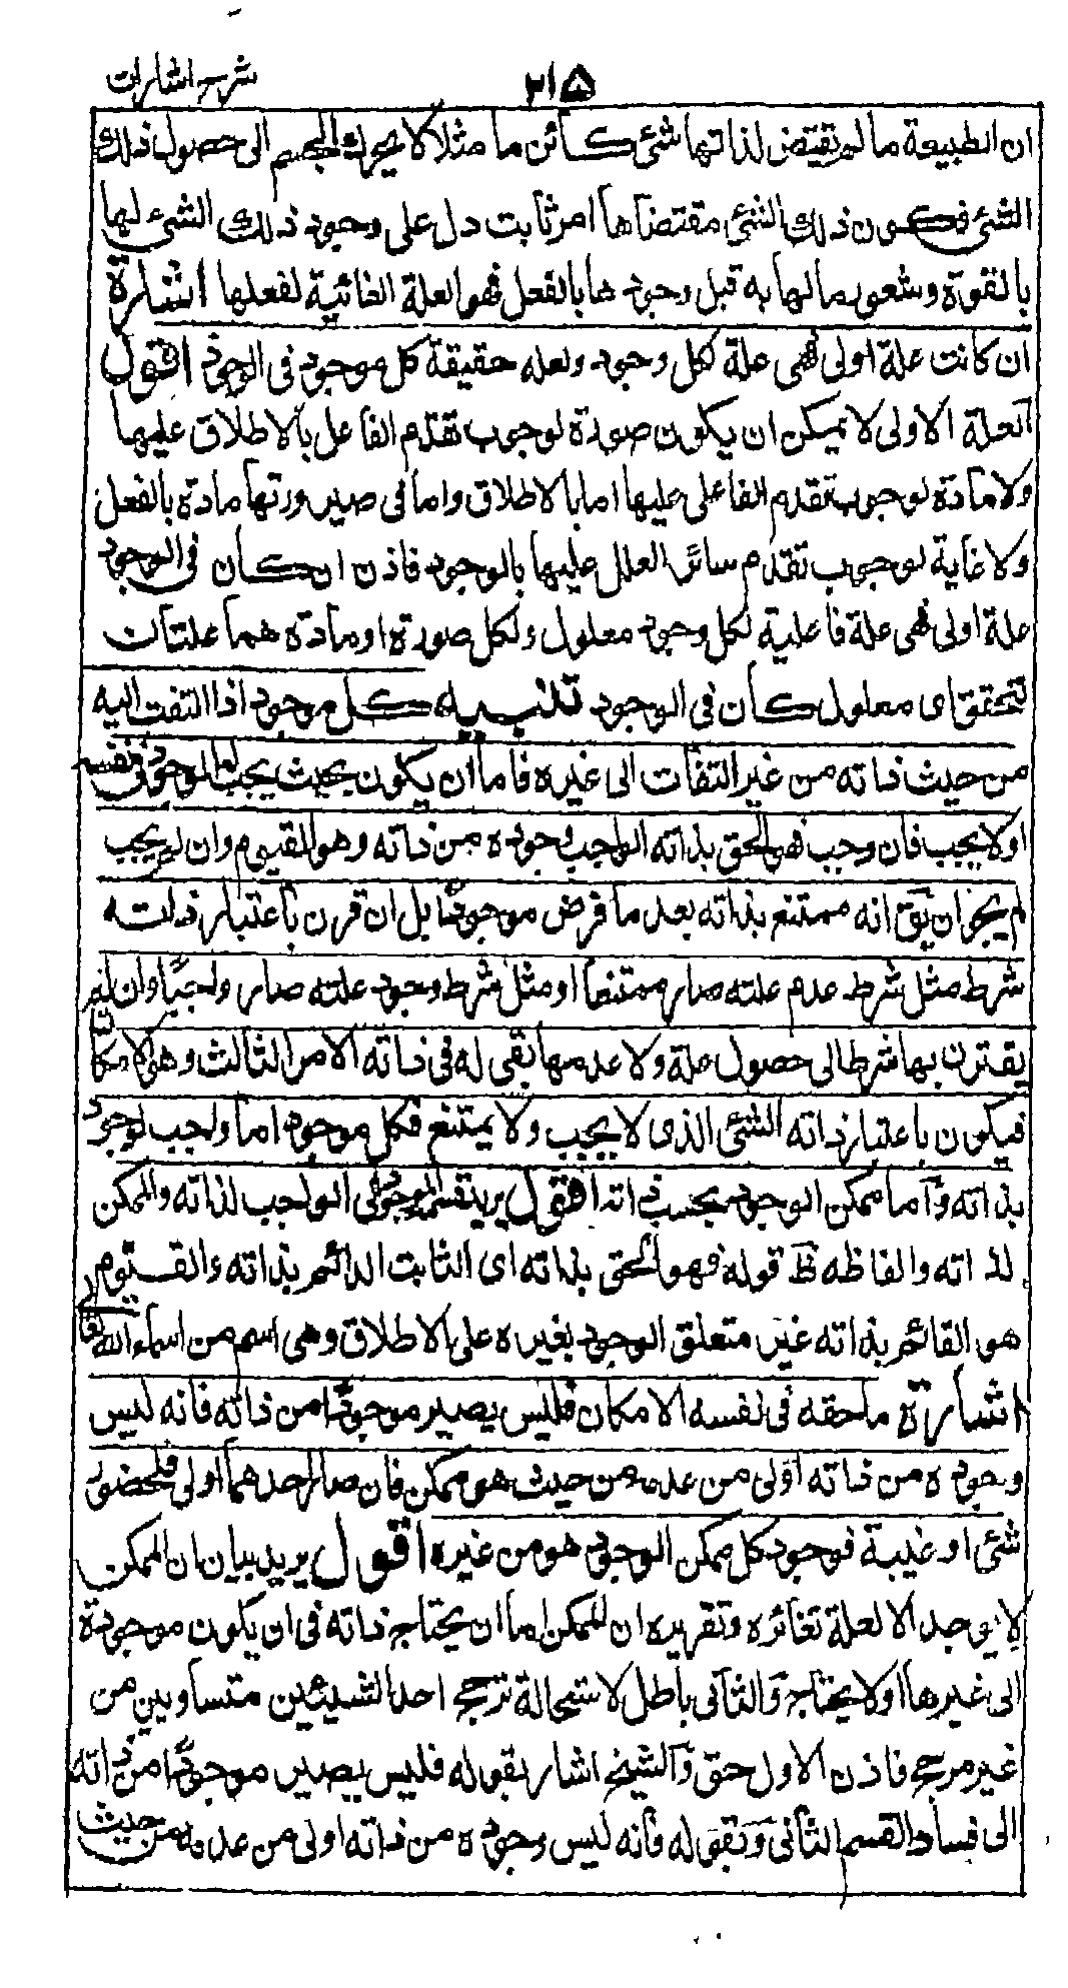 شرح اشارات
٢١٥
ان الطبيعة ما لم يقتض لذاتها شئ كائن ما مثلا لا يحرك الجسم الى حصول ذلك
الشئ فكون ذلك الشئ مقتضاها امر ثابت دل على وجود ذلك الشئ لها
بالقوة وشعور ما لها به قبل وجودها بالفعل فهو العلة الغائية لفعلها اشارة
ان كانت علة اولى فهى علة لكل وجود ولعلة حقيقة كل موجود فى الوجود اقول
العلة الاولى لا يمكن ان يكون صورة لوجوب تقدم الفاعل بالاطلاق عليها
ولا مادة لوجوب تقدم الفاعل عليها اما بالاطلاق واما فى صيرورتها مادة بالفعل
ولا غاية لوجوب تقدم سائر العلل عليها بالوجود فاذن ان كان فى الوجود
علة اولى فهى علة فاعلية لكل وجود معلول ولكل صورة او مادة هما علتان
لتحقق اى معلول كان فى الوجود تنبيه كل موجود اذا التفت اليه
من حيث ذاته من غير التفات الى غيره فاما ان يكون بحيث يجب له الوجود فى نفسه
او لا يجب فان وجب فهو الحق بذاته الواجب وجوده من ذاته وهو القيوم وان لم يجب
لم يجز ان يق انه ممتنع بذاته بعد ما فرض موجودًا بل ان قرن باعتبار ذاته
شرط مثل شرط عدم علته صار ممتنعا او مثل شرط وجود علته صار واجبًا وان لم
يقترن بها شرط الى حصول علة ولا عدمها بقى له فى ذاته الامر الثالث وهو الامكان
فيكون باعتبار ذاته الشئ الذى لا يجب ولا يمتنع فكل موجود اما واجب الوجود
بذاته وآما ممكن الوجود بحسب ذاته اقول يريد تقسيم الموجود الى الواجب لذاته والممكن
لذاته والفاظه ظ قوله فهو الحق بذاته اى الثابت الدائم بذاته والقيوم
هو القائم بذاته غير متعلق الوجود بغيره على الاطلاق وهى اسم من اسماء الله تعالى
اشارة ما حقه فى نفسه الامكان فليس يصير موجودًا من ذاته فانه ليس
وجوده من ذاته اولى من عدمه من حيث هو ممكن فان صار احدهما اولى فلحضور
شئ او غيبة فوجود كل ممكن الوجود هو من غيره اقول يريد بيان ان الممكن
لا يوجد الا لعلة تغائره وتقريره ان الممكن اما ان يحتاج ذاته فى ان يكون موجودة
الى غيرها او لا يحتاج والثانى باطل لاستحالة ترجح احد الشيئين متساويين من
غير مرجح فاذن الاول حق وآلشيخ اشار بقوله فليس يصير موجودًا من ذاته
الى فساد القسم الثانى وبقوله فانه ليس وجوده من ذاته اولى من عدمه من حيث